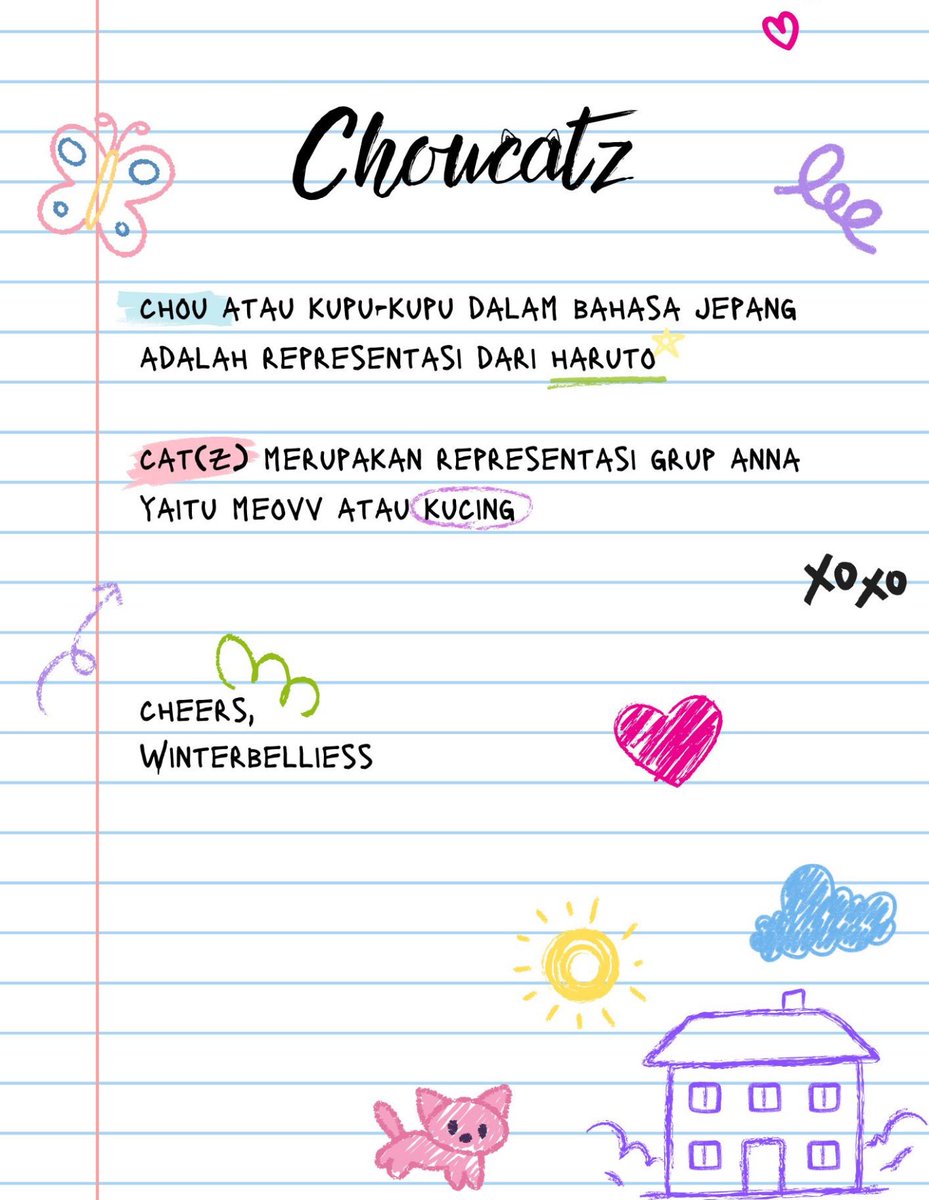 Choucatz
CHOU ATAU KUPU-KUPU DALAM BAHASA JEPANG
ADALAH REPRESENTASI DARI HARUTO
CAT(Z) MERUPAKAN REPRESENTASI GRUP ANNA
YAITU MEOVV ATAU KUCING
XOXO
CHEERS,
WINTERBELLIESS